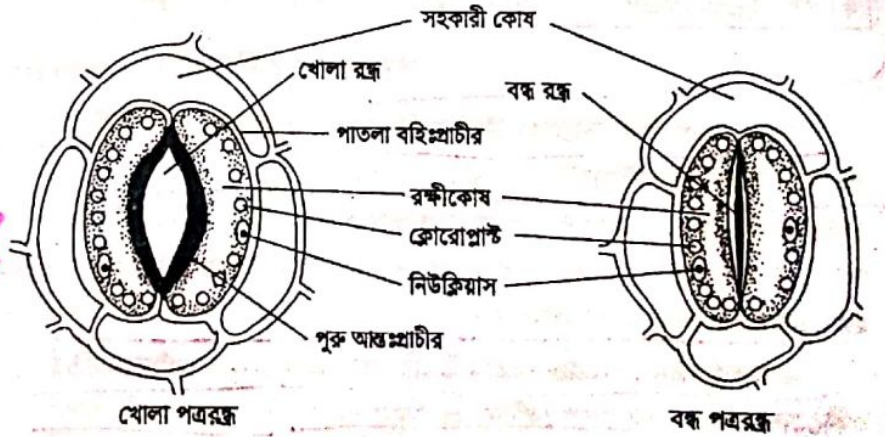 সহকারী কোষ
খোলা রন্ধ্র
বন্ধ রন্ধ্র
পাতলা বহিঃপ্রাচীর
রক্ষীকোষ
ক্লোরোপ্লাস্ট
নিউক্লিয়াস
পুরু আন্তঃপ্রাচীর
খোলা পত্ররন্ধ্র
বন্ধ পত্ররন্ধ্র